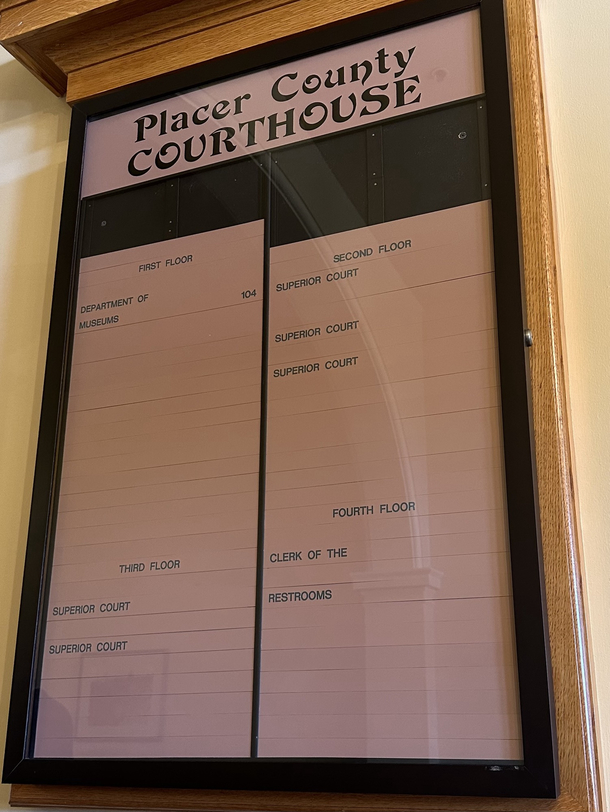 Placer County
COURTHOUSE
FIRST FLOOR
DEPARTMENT OF 104
MUSEUMS
SECOND FLOOR
SUPERIOR COURT
SUPERIOR COURT
SUPERIOR COURT
THIRD FLOOR
SUPERIOR COURT
SUPERIOR COURT
FOURTH FLOOR
CLERK OF THE
RESTROOMS